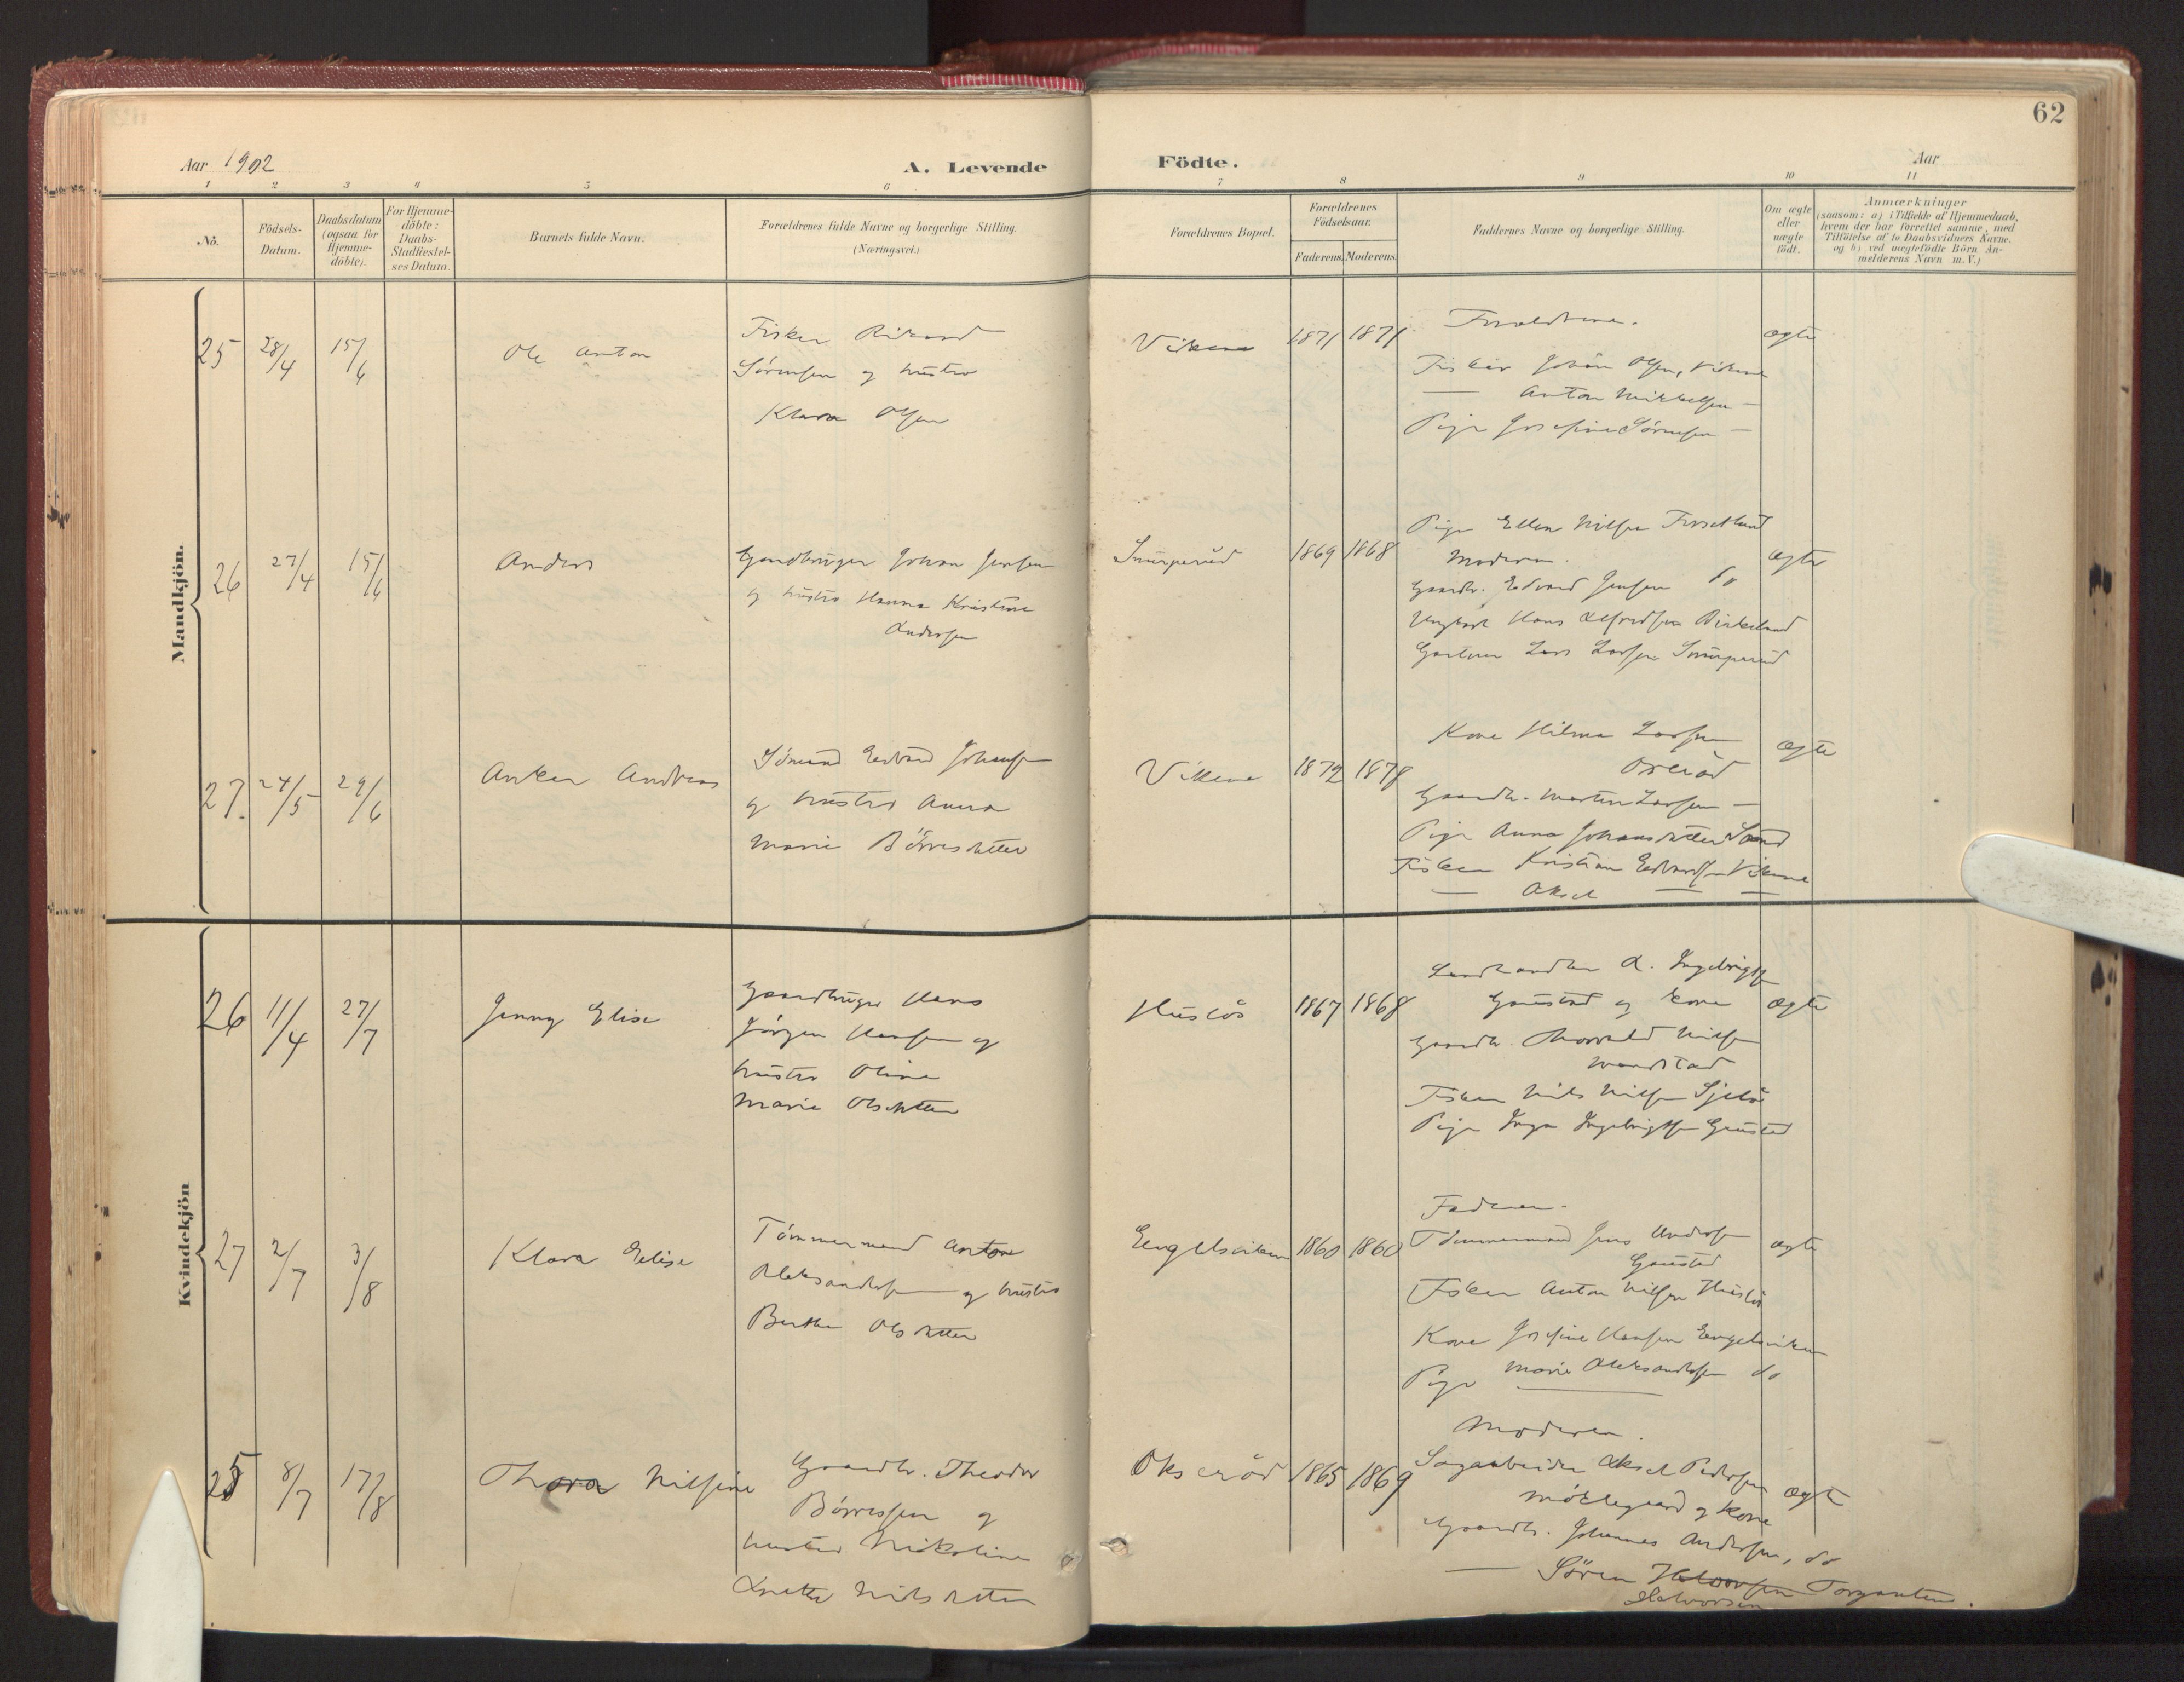 62
Aar 1902
A. Levende Födte.
Aar
1 2 3 4 5 6 7 8 9 10 11
No.
Födsels-
Datum.
Daabsdatum
(ogsaa for
Hjemme-
döbte).
For Hjemme-
döbte:
Daabs-
Stadfæstel-
ses Datum.
Barnets fulde Navn.
Forældrenes fulde Navne og borgerlige Stilling.
(Næringsvei.)
Forældrenes Bopæl.
Forældrenes
Födselsaar.
Faderens. Moderens.
Faddernes Navne og borgerlige Stilling.
Om ægte
eller
uægte
födt.
Anmærkninger
(saasom: a) i Tilfælde af Hjemmedaab,
hvem der har forrettet samme, med
Tilföielse af to Daabsvidners Navne.
og b) ved uægtefödte Börn An-
melderens Navn m. V.)
Mandkjön.
25 28/4 15/6 Ole Anton
Fisker Rikard
Sörensen og hustru
Klara Olsen
Vikene 1871 1871
Forældrene.
Fisker Johan Olsen, Vikene
— Anton Mikkelsen —
Pige Josefine Sörensen —
ægte
26 27/4 15/6 Anders
Gaardbruger Johan Jensen
og hustru Hanna Kristine
Andersen
1869 1868
Pige Ellen Nilsen
Moderen.
Gaardbr. Edvard Jensen do
Ungkarl Hans Alfredsen Birkelund
Gartner Lars Larsen
ægte
27. 24/5 29/6 Anker Andreas
Sömand Edvard Johansen
og hustru Anna
Marie Börresdatter
Vikene 1872 1878
Kone Hilma Larsen
Oxeröd
Gaardbr. Marten Larsen —
Pige Anna Johansdatter Sand
Fisker Kristian Edvardsen Vikene
— Aksel — —
ægte
Kvindekjön
26 11/4 27/7 Jenny Elise
Gaardbruger Hans
Jörgen Hansen og
hustru Oline
Marie Olsdatter
Huslös 1867 1868
Landhandler A. Ingebrigtsen
Gaustad og kone
Gaardbr. Thorvald Nilsen
Fisker Nils Nilsen
Pige Inga Ingebrigtsen Gaustad
ægte
27 2/7 3/8 Klara Elise
Tömmermand Anton
Aleksandersen og hustru
Berthe Olsdatter
Engelsviken 1860 1860
Faderen.
Tömmermand Jens Andersen
Gaustad
Fisker Anton Nilsen Huslös
Kone Josefine Hansen Engelsviken
Pige Marie Aleksandersen do
ægte
25 8/7 17/8 Thora Nilsine
Gaardbr. Theodor
Börresen og
hustru Nikoline
Anette Nilsdatter
Okseröd 1865 1869
Moderen.
Sagarbeider Aksel Pedersen
Möklegaard og kone
Gaardbr. Johannes Andersen, do
— Sören Halvorsen Torgauten.
Halvorsen
ægte